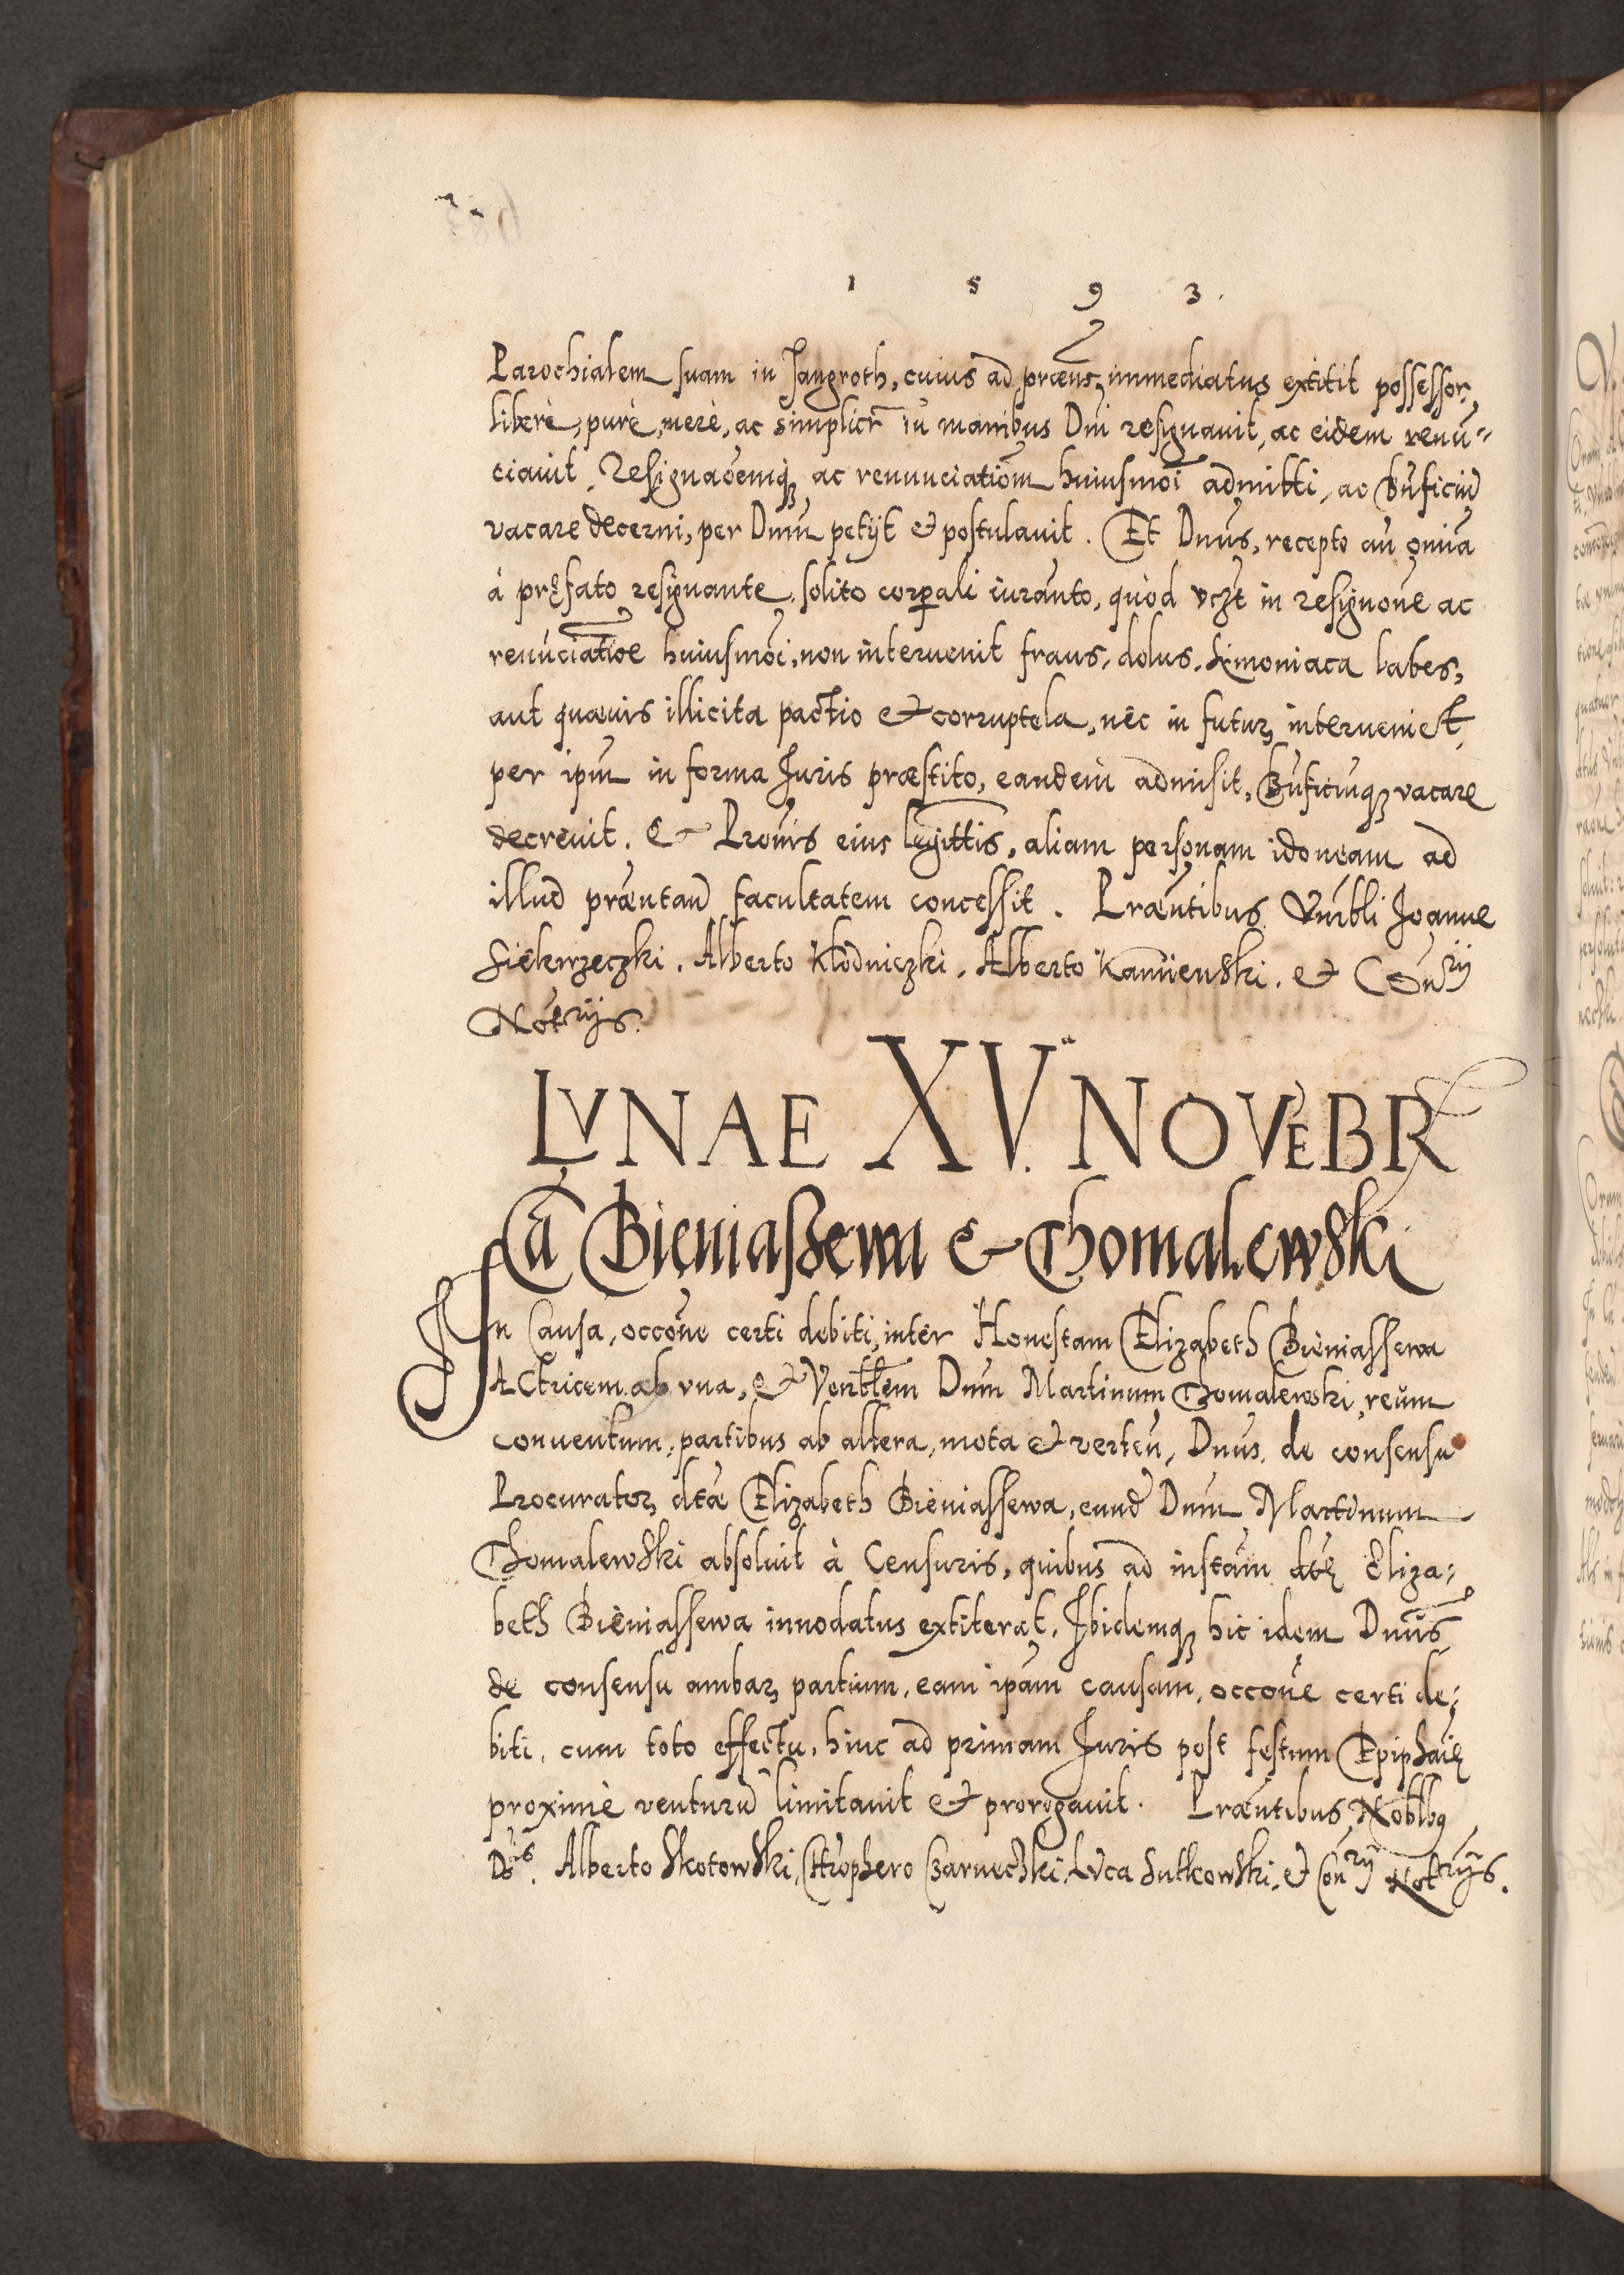 1 5 9 3.
Parochialem suam in Jangroth, cuius ad præns, immediatus extitit possessor,
liberè, purè, merè, ac simplicr in manibus Dni resignauit, ac eidem renū=
ciauit. Resignaōemq; ac renunciatiom huiusmoi admitti, ac Bnficiū
vacare decerni, per Dnum petijt & postulauit. Et Dnus, recepto an omnia
à pręfato resignante, solito corpali iuranto, quòd vczt in resignone ac
renuciatioe huiusmoi, non interuenit fraus, dolus, Simoniaca labes,
aut quævis illicita pactio & corruptela, nec in futur, interueniet,
per ipm in forma Juris præstito, eandem admisit, Bnficiuq; vacare
decreuit. & Prouis eius legittis, aliam personam idoneam ad
illud præntand facultatem concessit. Præntibus Vnrbli Joanne
Siekrzeczki. Alberto Klodniczki. Alberto Kamienski. & Conrij
Notrijs.
LVNAE XV.a NOVEBR
Cā Bieniaszewa & Thomalewski
In Causa, occone certi debiti, inter Honestam Elizabeth Bieniassewa
Actricem ab vna, & Venblem Dnm Martinum Thomalewski, reum
conuentum, partibus ab altera, mota & verten, Dnus. de consensu
Procurator, dtæ Elizabeth Bieniassewa, eund Dnm Martinum
Thomalewski absoluit à Censuris, quibus ad instam dtę Eliza=
beth Bieniassewa innodatus extiterat. Ibidemq; hic idem Dnus
de consensu ambar, partium, eam ipam causam, occone certi de=
biti, cum toto effectu, hinc ad primam Juris post festum Epiphaię
proximè venturū limitauit & prorogauit. Præntibus Noblbq
Dis. Alberto Skotowski, Chrophero Czarneczki, Luca Sutkowski, & Conrij Notrijs.